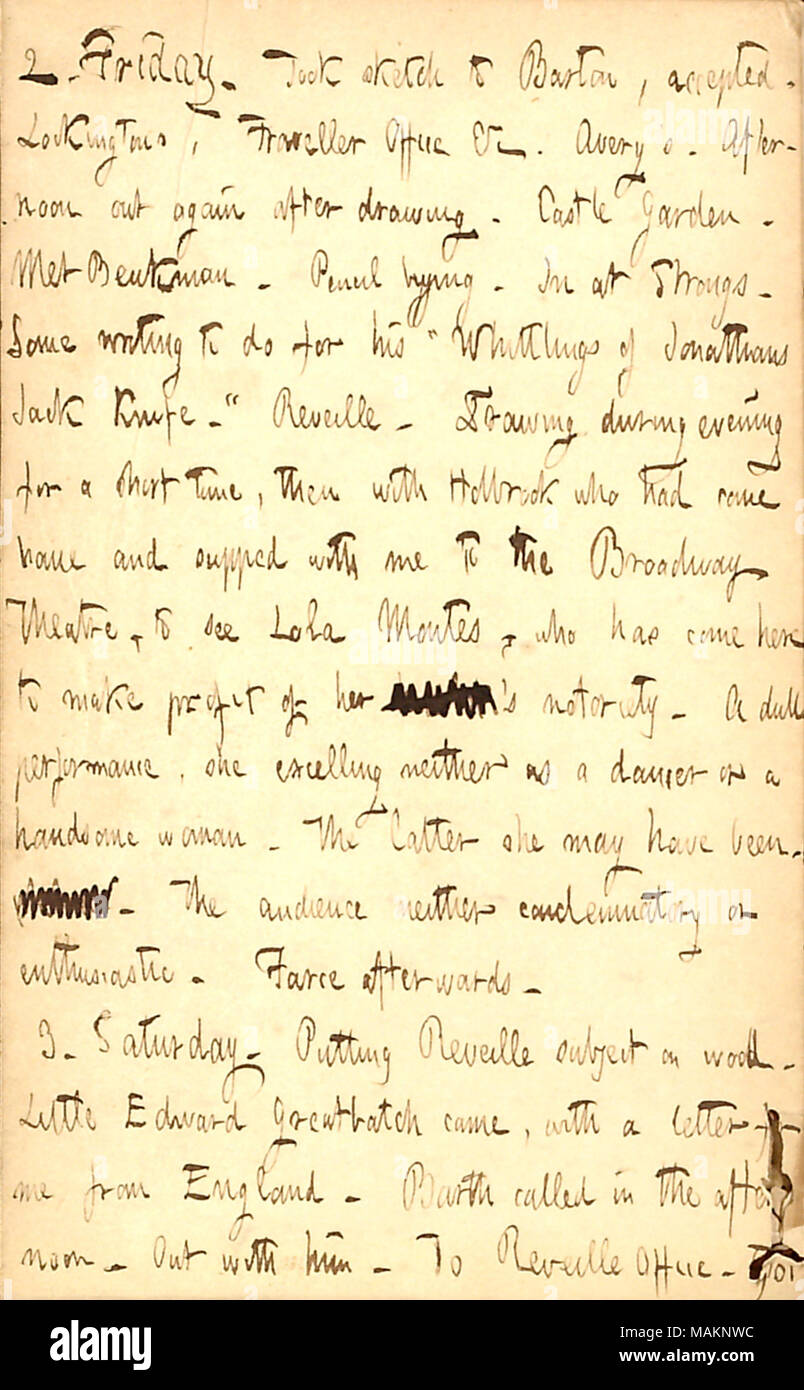 2. Friday. Took sketch to Barton, accepted.
Lockingtons, Traveller Office &c. Avery's. After-
noon out again after drawing. Castle Garden.
Met Beutkman. Pencil buying. In at Strongs.
Some writing to do for his "Whittlings of Jonathans
Jack Knife." Reveille. Drawing during evening
for a short time, then with Holbrook who had come
home and supped with me to the Broadway
Theatre, to see Lola Montes, who has come here
to make profit of her 's notoriety. A dull
performance, she excelling neither as a dancer or a
handsome woman. The latter she may have been.
The audience neither condemnatory or
enthusiastic. Farce afterwards.
3. Saturday. Putting Reveille subject on wood.
Little Edward Greatbatch came, with a letter for
me from England. Barth called in the after
noon. Out with him. To Reveille Office.
alamy
Image ID: MAKNWC
www.alamy.com